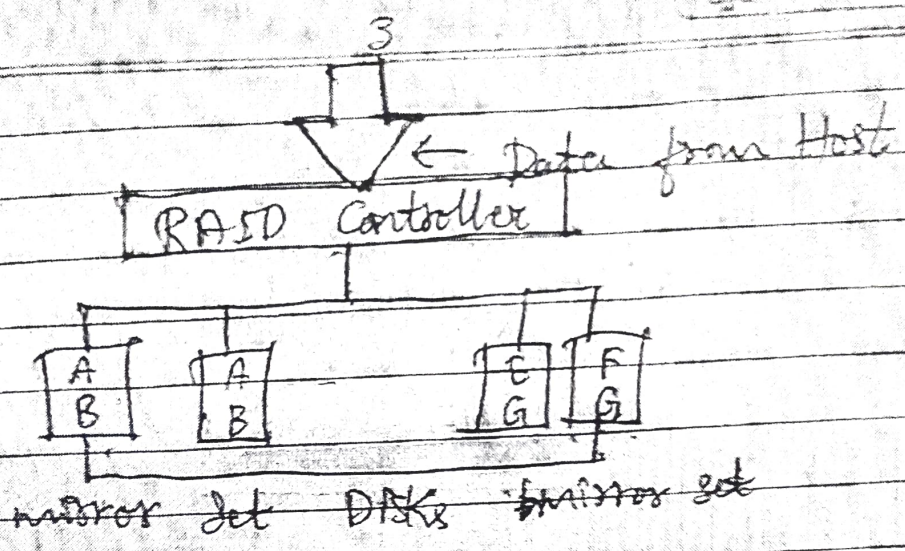 3
← Data from Host
RAID Controller
A A E F
B B G G
mirror Set DISKs mirror set